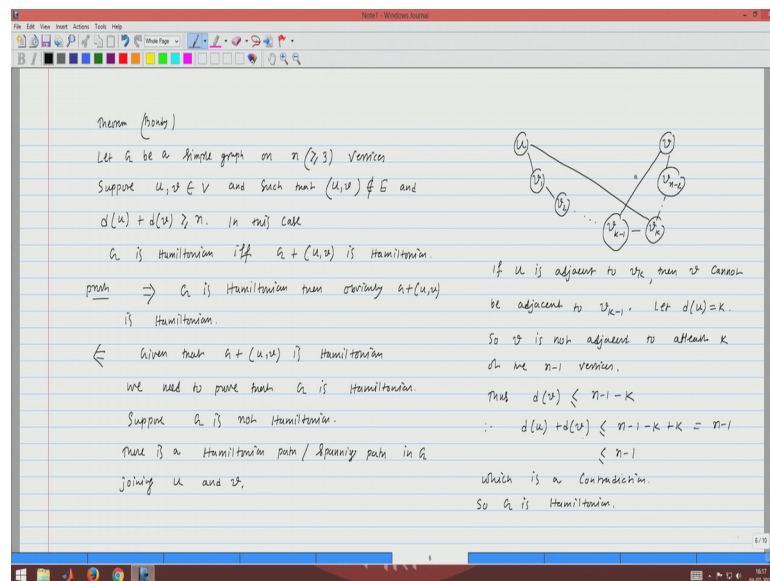 Note1 - Windows Journal
File Edit View Insert Actions Tools Help
Whole Page
B I
Theorem (Bondy)
Let G be a simple graph on n (≥3) vertices
Suppose u, v ∈ V and such that (u,v) ∉ E and
d(u) + d(v) ≥ n. In this case
G is Hamiltonian iff G + (u,v) is Hamiltonian.
proof ⇒ G is Hamiltonian then obviously G+(u,v)
is Hamiltonian.
⇐ Given that G + (u,v) is Hamiltonian
we need to prove that G is Hamiltonian.
Suppose G is not Hamiltonian.
There is a Hamiltonian path / Spanning path in G
joining u and v.
u v
v1 vn-2
v2
vk-1 vk
If u is adjacent to vk, then v cannot
be adjacent to vk-1. Let d(u)=k.
So v is not adjacent to atleast k
of the n-1 vertices.
Thus d(v) ≤ n-1-k
∴ d(u) + d(v) ≤ n-1-k+k = n-1
≤ n-1
which is a contradiction.
So G is Hamiltonian.
6/10
6
16:17